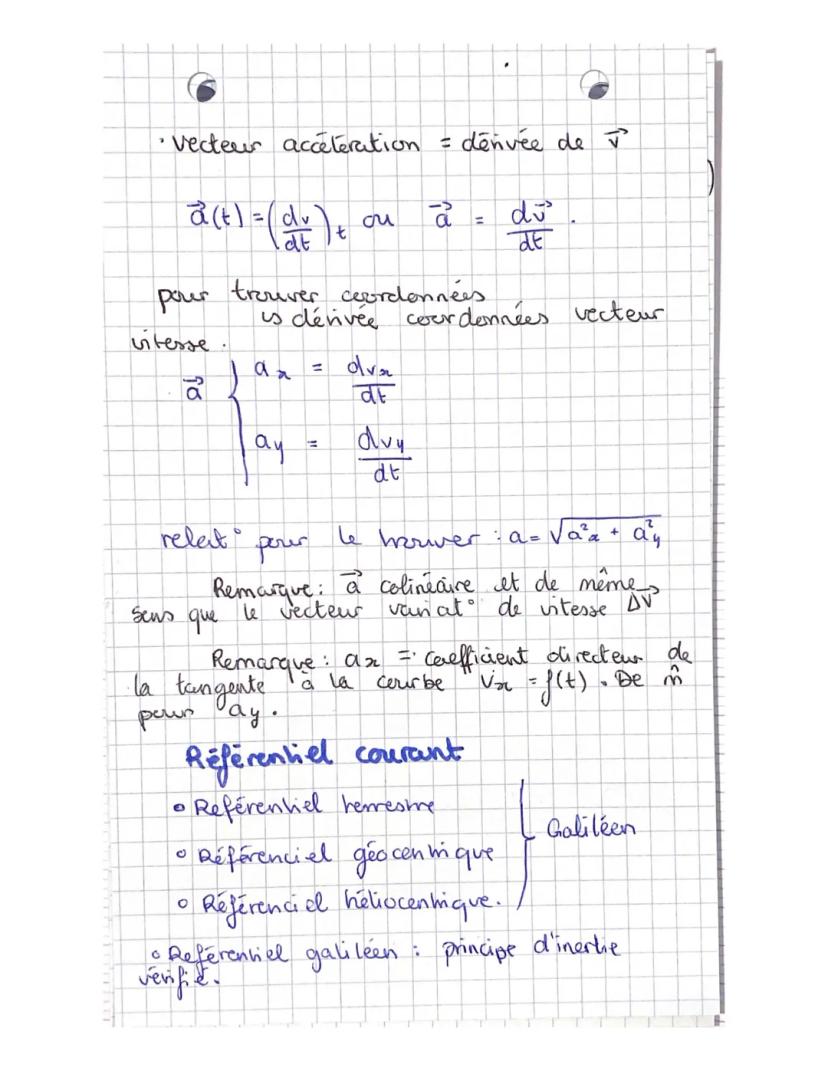 · Vecteur accélération = dérivée de v⃗
a⃗(t) = (dv/dt)t ou a⃗ = dv⃗/dt .
pour trouver coordonnées
↳ dérivée coordonnées vecteur
vitesse .
a⃗ { ax = dvx/dt
ay = dvy/dt
relat° pour le trouver : a = √(a²x + a²y)
Remarque : a⃗ colinéaire et de même
sens que le vecteur variat° de vitesse ΔV⃗
Remarque : ax = coefficient directeur de
la tangente à la courbe vx = f(t) . De m̂
pour ay .
Référentiel courant
• Référentiel terrestre
• Référenciel géocentrique
} Galiléen
• Référenciel héliocentrique.
• Référentiel galiléen : principe d'inertie
vérifié.